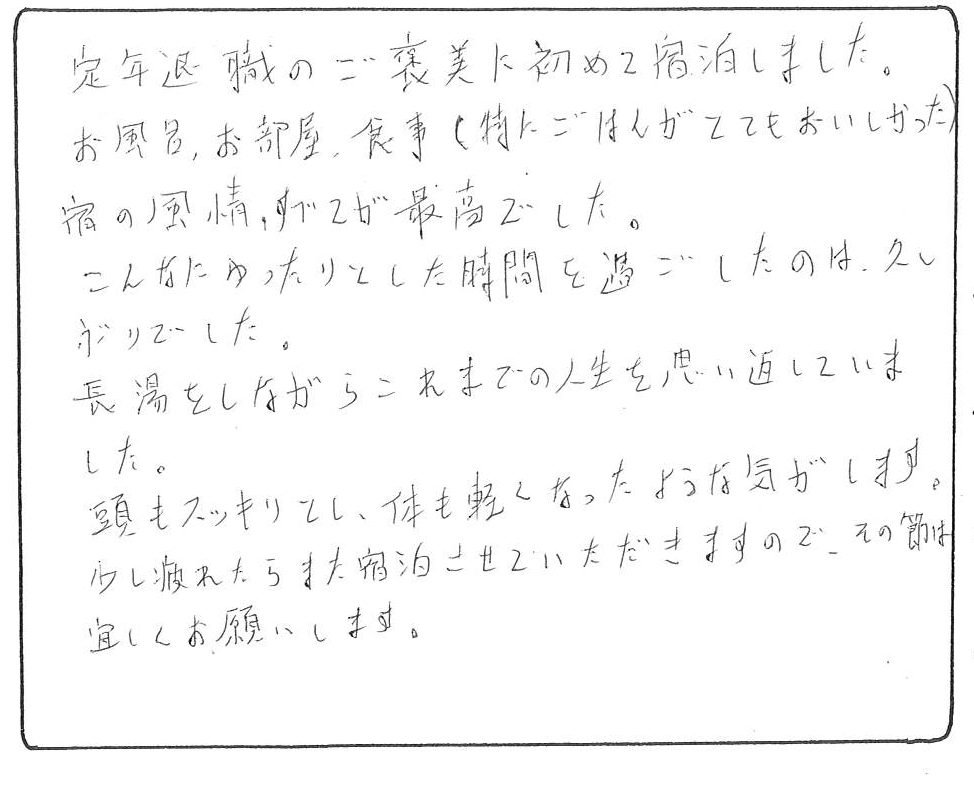 定年退職のご褒美に初めて宿泊しました。
お風呂、お部屋、食事（特にごはんがとてもおいしかった）
宿の風情、すべてが最高でした。
こんなにゆったりとした時間を過ごしたのは、久し
ぶりでした。
長湯をしながらこれまでの人生を思い返していま
した。
頭もスッキリとし、体も軽くなったような気がします。
少し疲れたらまた宿泊させていただきますので、その節は
宜しくお願いします。